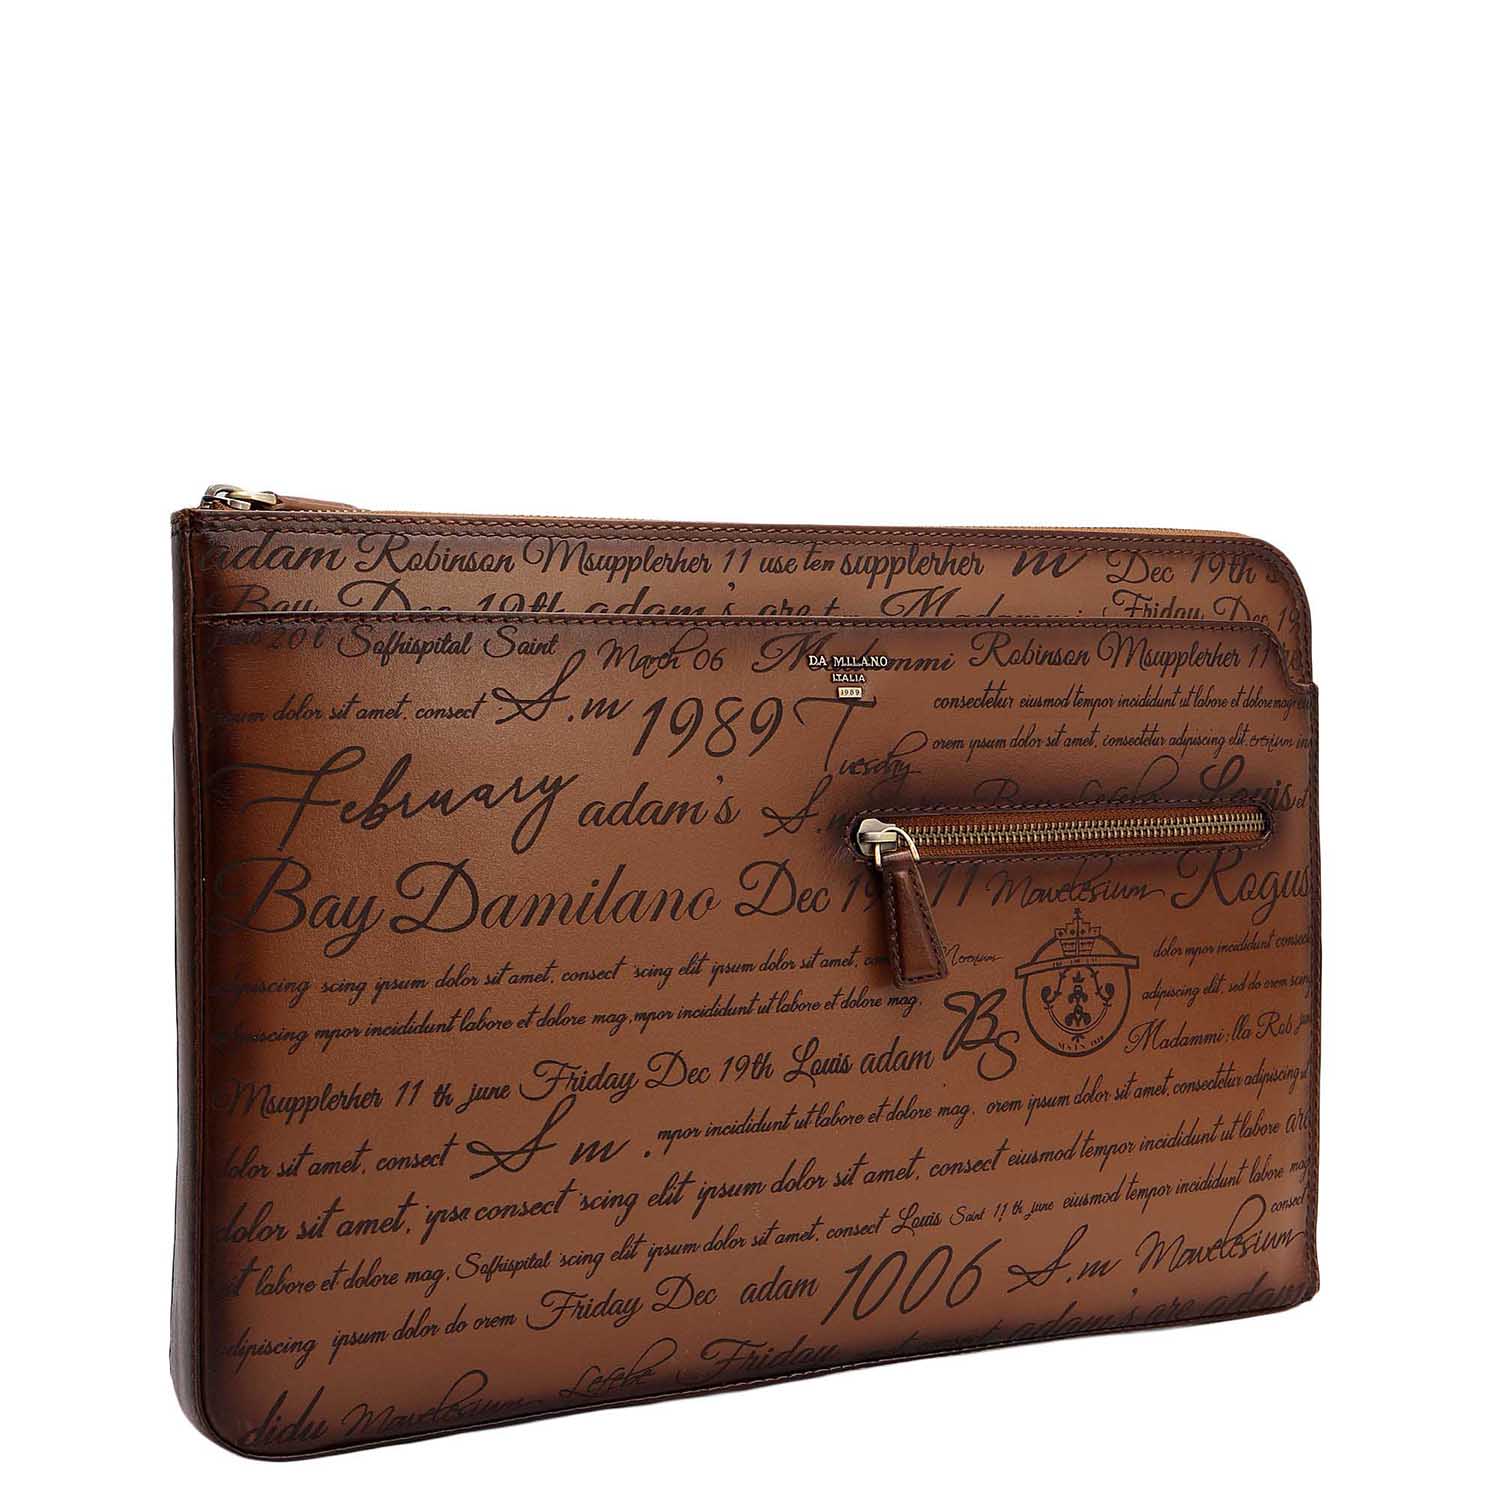 adam Robinson Msupplerher 11 use ten supplerher m Dec 19th
Bay Dec 19th adam's are
Sofhispital Saint March 06 Robinson Msupplerher 11
DA MILANO
ITALIA
1989
dolor sit amet, consect S.m 1989 Tuesday
consectetur eiusmod tempor incididunt ut labore et dolore mag
orem ypsum dolor sit amet, consectetur adipiscing elit.
February adam's Louis et
Bay Damilano Dec 11 Mavelesium Rogus
adipiscing scing ypsum dolor sit amet, consect scing elit ypsum dolor sit amet,
dolor mpor incididunt consec
mpor incididunt labore et dolore mag, mpor incididunt ut labore et dolore mag,
BS
adipiscing elit, sed do orem scing
Msupplerher 11 th june Friday Dec 19th Louis adam
dolor sit amet, consect S m . mpor incididunt ut labore et dolore mag, orem ypsum dolor sit amet, consectetur adipiscing
dolor sit amet, ypsa consect scing elit ypsum dolor sit amet, consect eiusmod tempor incididunt ut labore are
labore et dolore mag, Sofhispital scing elit ypsum dolor sit amet, consect Louis Saint 11 th june eiusmod tempor incididunt labore mag
adipiscing ypsum dolor do orem Friday Dec adam 1006 S.m Mavelesium consect
didu Mavelesium Lefebe Friday adam's are adam